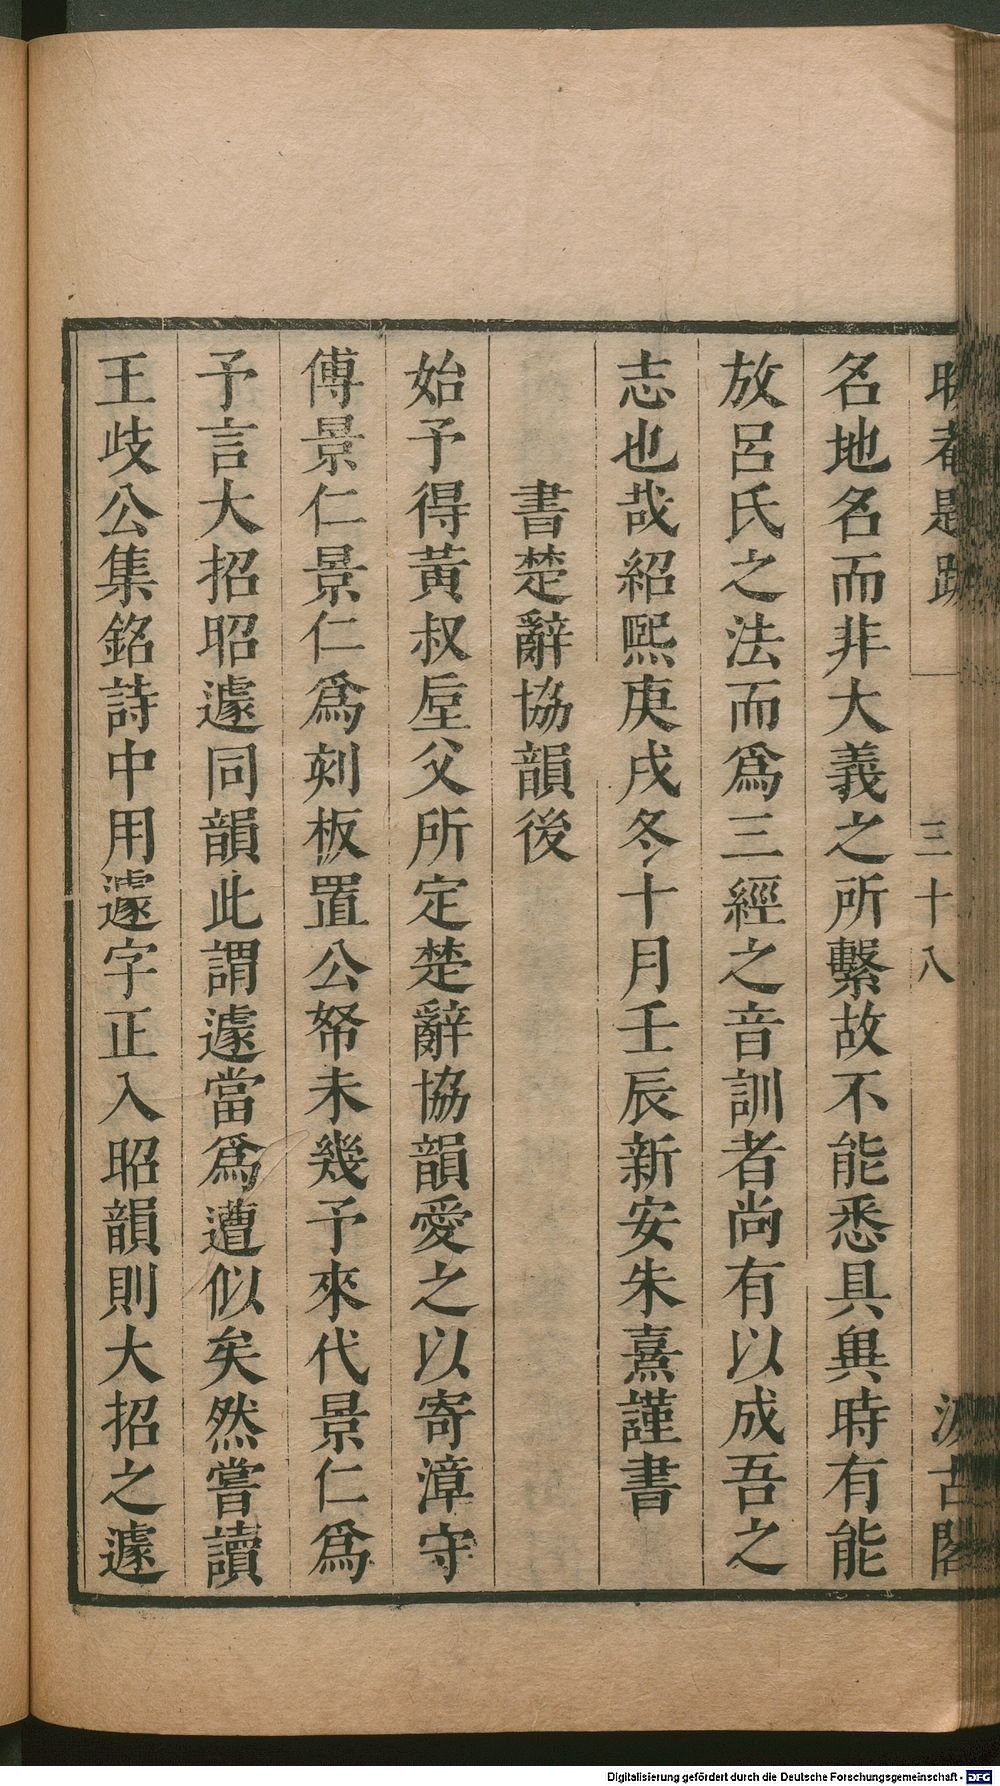 晦菴題跋
三十八
汲古閣
名地名而非大義之所繫故不能悉具異時有能
放呂氏之法而爲三經之音訓者尚有以成吾之
志也哉紹熙庚戌冬十月壬辰新安朱熹謹書
書楚辭協韻後
始予得黃叔垕父所定楚辭協韻愛之以寄漳守
傅景仁景仁爲刻板置公帑未幾予來代景仁爲
予言大招昭遽同韻此謂遽當爲遭似矣然嘗讀
王歧公集銘詩中用遽字正入昭韻則大招之遽
Digitalisierung gefördert durch die Deutsche Forschungsgemeinschaft - DFG